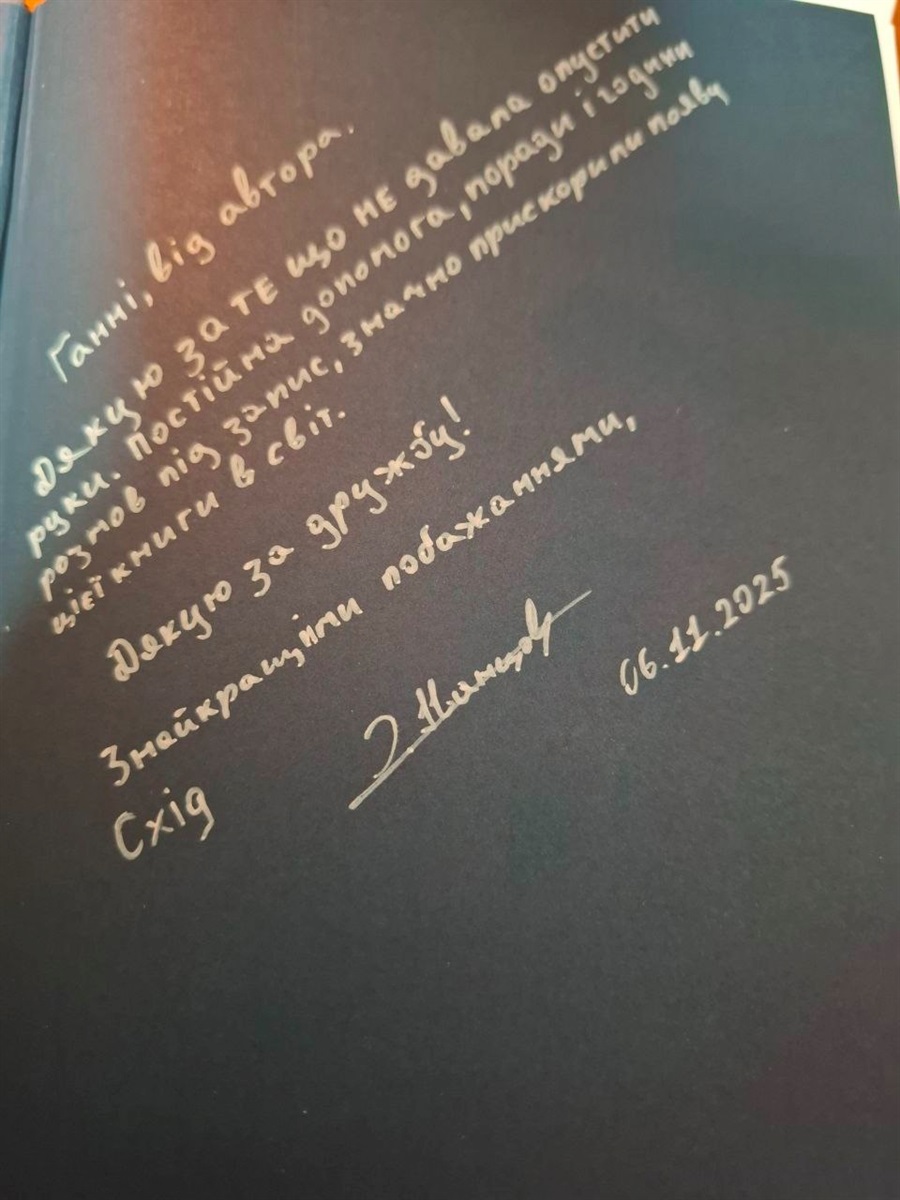 Ганні, від автора.
Дякую за те що не давала опустити
руки. Постійна допомога, поради і години
розмов під запис, значно прискорили появу
цієї книги в світ.
Дякую за дружбу!
Знайкращими побажаннями,
06.11.2025
Схід